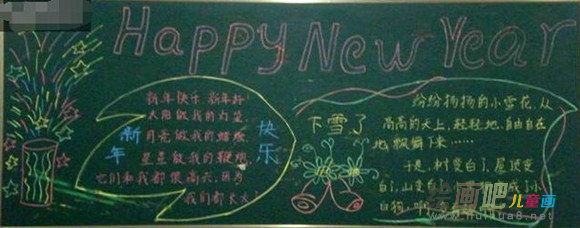 Happy New Year
新年
快乐
新年快乐 新年好!
太阳做我的灯笼
月亮做我的蜡烛
星星做我的鞭炮
它们和我都很高兴,因为
我们都长大!
下雪了
纷纷扬扬的小雪花,从
高高的天上,轻轻地、自由自在
地飘落下来……
于是,树变白了,屋顶变
白了,山变白
成了小
白狗,啊
绘画吧儿童画
www.huihua8.net